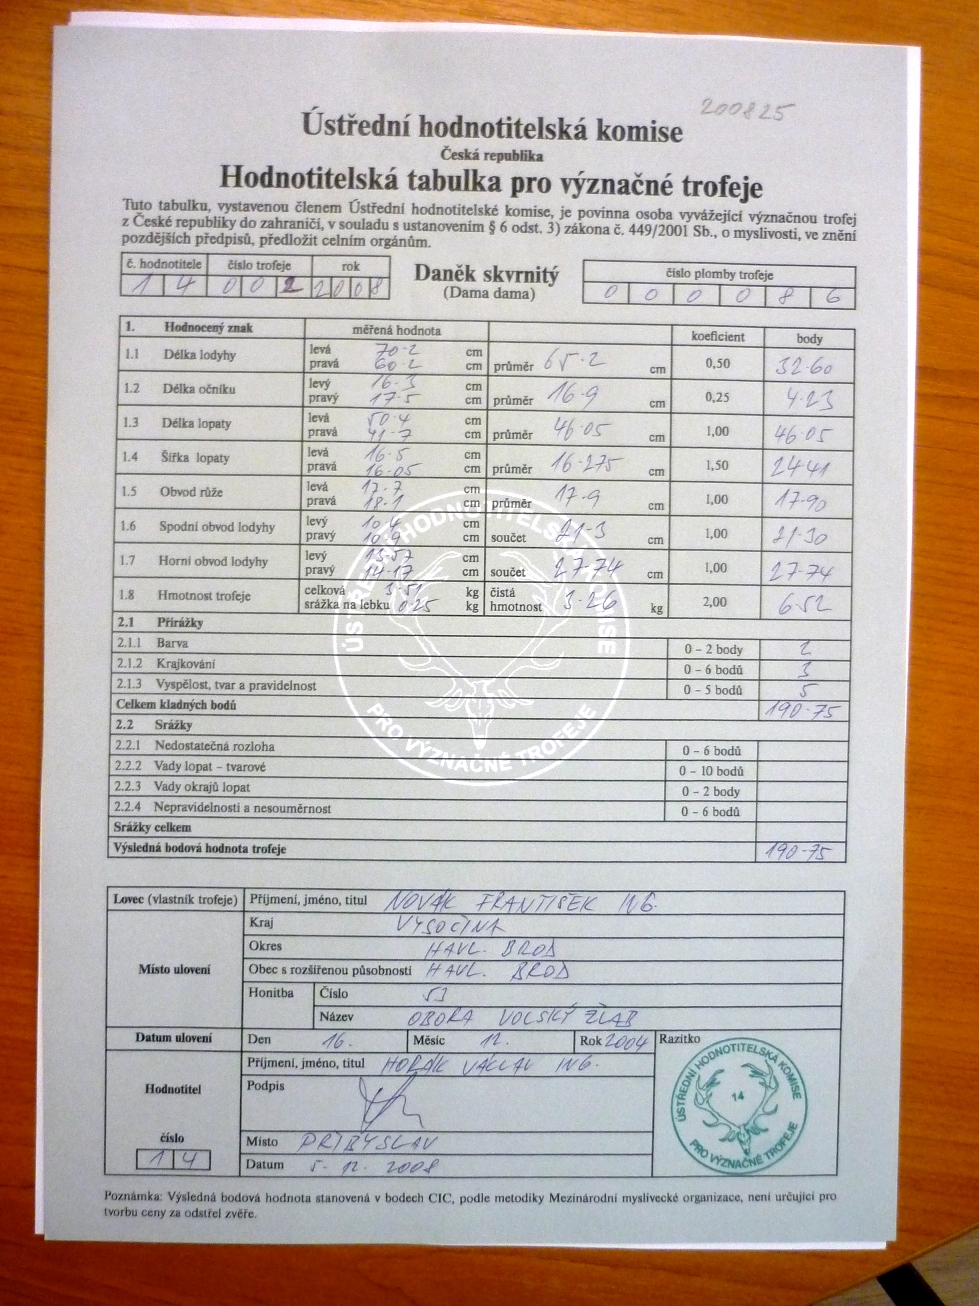 200825
Ústřední hodnotitelská komise
Česká republika
Hodnotitelská tabulka pro význačné trofeje
Tuto tabulku, vystavenou členem Ústřední hodnotitelské komise, je povinna osoba vyvážející význačnou trofej
z České republiky do zahraničí, v souladu s ustanovením § 6 odst. 3) zákona č. 449/2001 Sb., o myslivosti, ve znění
pozdějších předpisů, předložit celním orgánům.
č. hodnotitele číslo trofeje rok
14 002 2008
Daněk skvrnitý
(Dama dama)
číslo plomby trofeje
0 0 0 0 8 6
1. Hodnocený znak měřená hodnota koeficient body
1.1 Délka lodyhy levá 70-2 cm
pravá 60-2 cm průměr 65-2 cm 0,50 32-60
1.2 Délka očníku levý 16-3 cm
pravý 17-5 cm průměr 16-9 cm 0,25 4-23
1.3 Délka lopaty levá 50-4 cm
pravá 41-7 cm průměr 46-05 cm 1,00 46-05
1.4 Šířka lopaty levá 16-5 cm
pravá 16-05 cm průměr 16-275 cm 1,50 24-41
1.5 Obvod růže levá 17-7 cm
pravá 18-1 cm průměr 17-9 cm 1,00 17-90
1.6 Spodní obvod lodyhy levý 10-4 cm
pravý 10-9 cm součet 21-3 cm 1,00 21-30
1.7 Horní obvod lodyhy levý 13-57 cm
pravý 14-17 cm součet 27-74 cm 1,00 27-74
1.8 Hmotnost trofeje celková 3-51 kg čistá
srážka na lebku 0-25 kg hmotnost 3-26 kg 2,00 6-52
2.1 Přirážky
2.1.1 Barva 0 – 2 body 2
2.1.2 Krajkování 0 – 6 bodů 3
2.1.3 Vyspělost, tvar a pravidelnost 0 – 5 bodů 5
Celkem kladných bodů 190-75
2.2 Srážky
2.2.1 Nedostatečná rozloha 0 – 6 bodů
2.2.2 Vady lopat – tvarové 0 – 10 bodů
2.2.3 Vady okrajů lopat 0 – 2 body
2.2.4 Nepravidelnosti a nesouměrnost 0 – 6 bodů
Srážky celkem
Výsledná bodová hodnota trofeje 190-75
ÚSTŘEDNÍ HODNOTITELSKÁ KOMISE
PRO VÝZNAČNÉ TROFEJE
Lovec (vlastník trofeje) Příjmení, jméno, titul NOVÁK FRANTIŠEK ING.
Místo ulovení Kraj VYSOČINA
Okres HAVL. BROD
Obec s rozšířenou působností HAVL. BROD
Honitba Číslo 51
Název OBORA VOLSKÝ ŽLAB
Datum ulovení Den 16. Měsíc 12. Rok 2004 Razítko
Hodnotitel Příjmení, jméno, titul HORÁK VÁCLAV ING.
Podpis
číslo
14
Místo PŘIBYSLAV
Datum 5. 12. 2008
ÚSTŘEDNÍ HODNOTITELSKÁ KOMISE
14
PRO VÝZNAČNÉ TROFEJE
Poznámka: Výsledná bodová hodnota stanovená v bodech CIC, podle metodiky Mezinárodní myslivecké organizace, není určující pro
tvorbu ceny za odstřel zvěře.